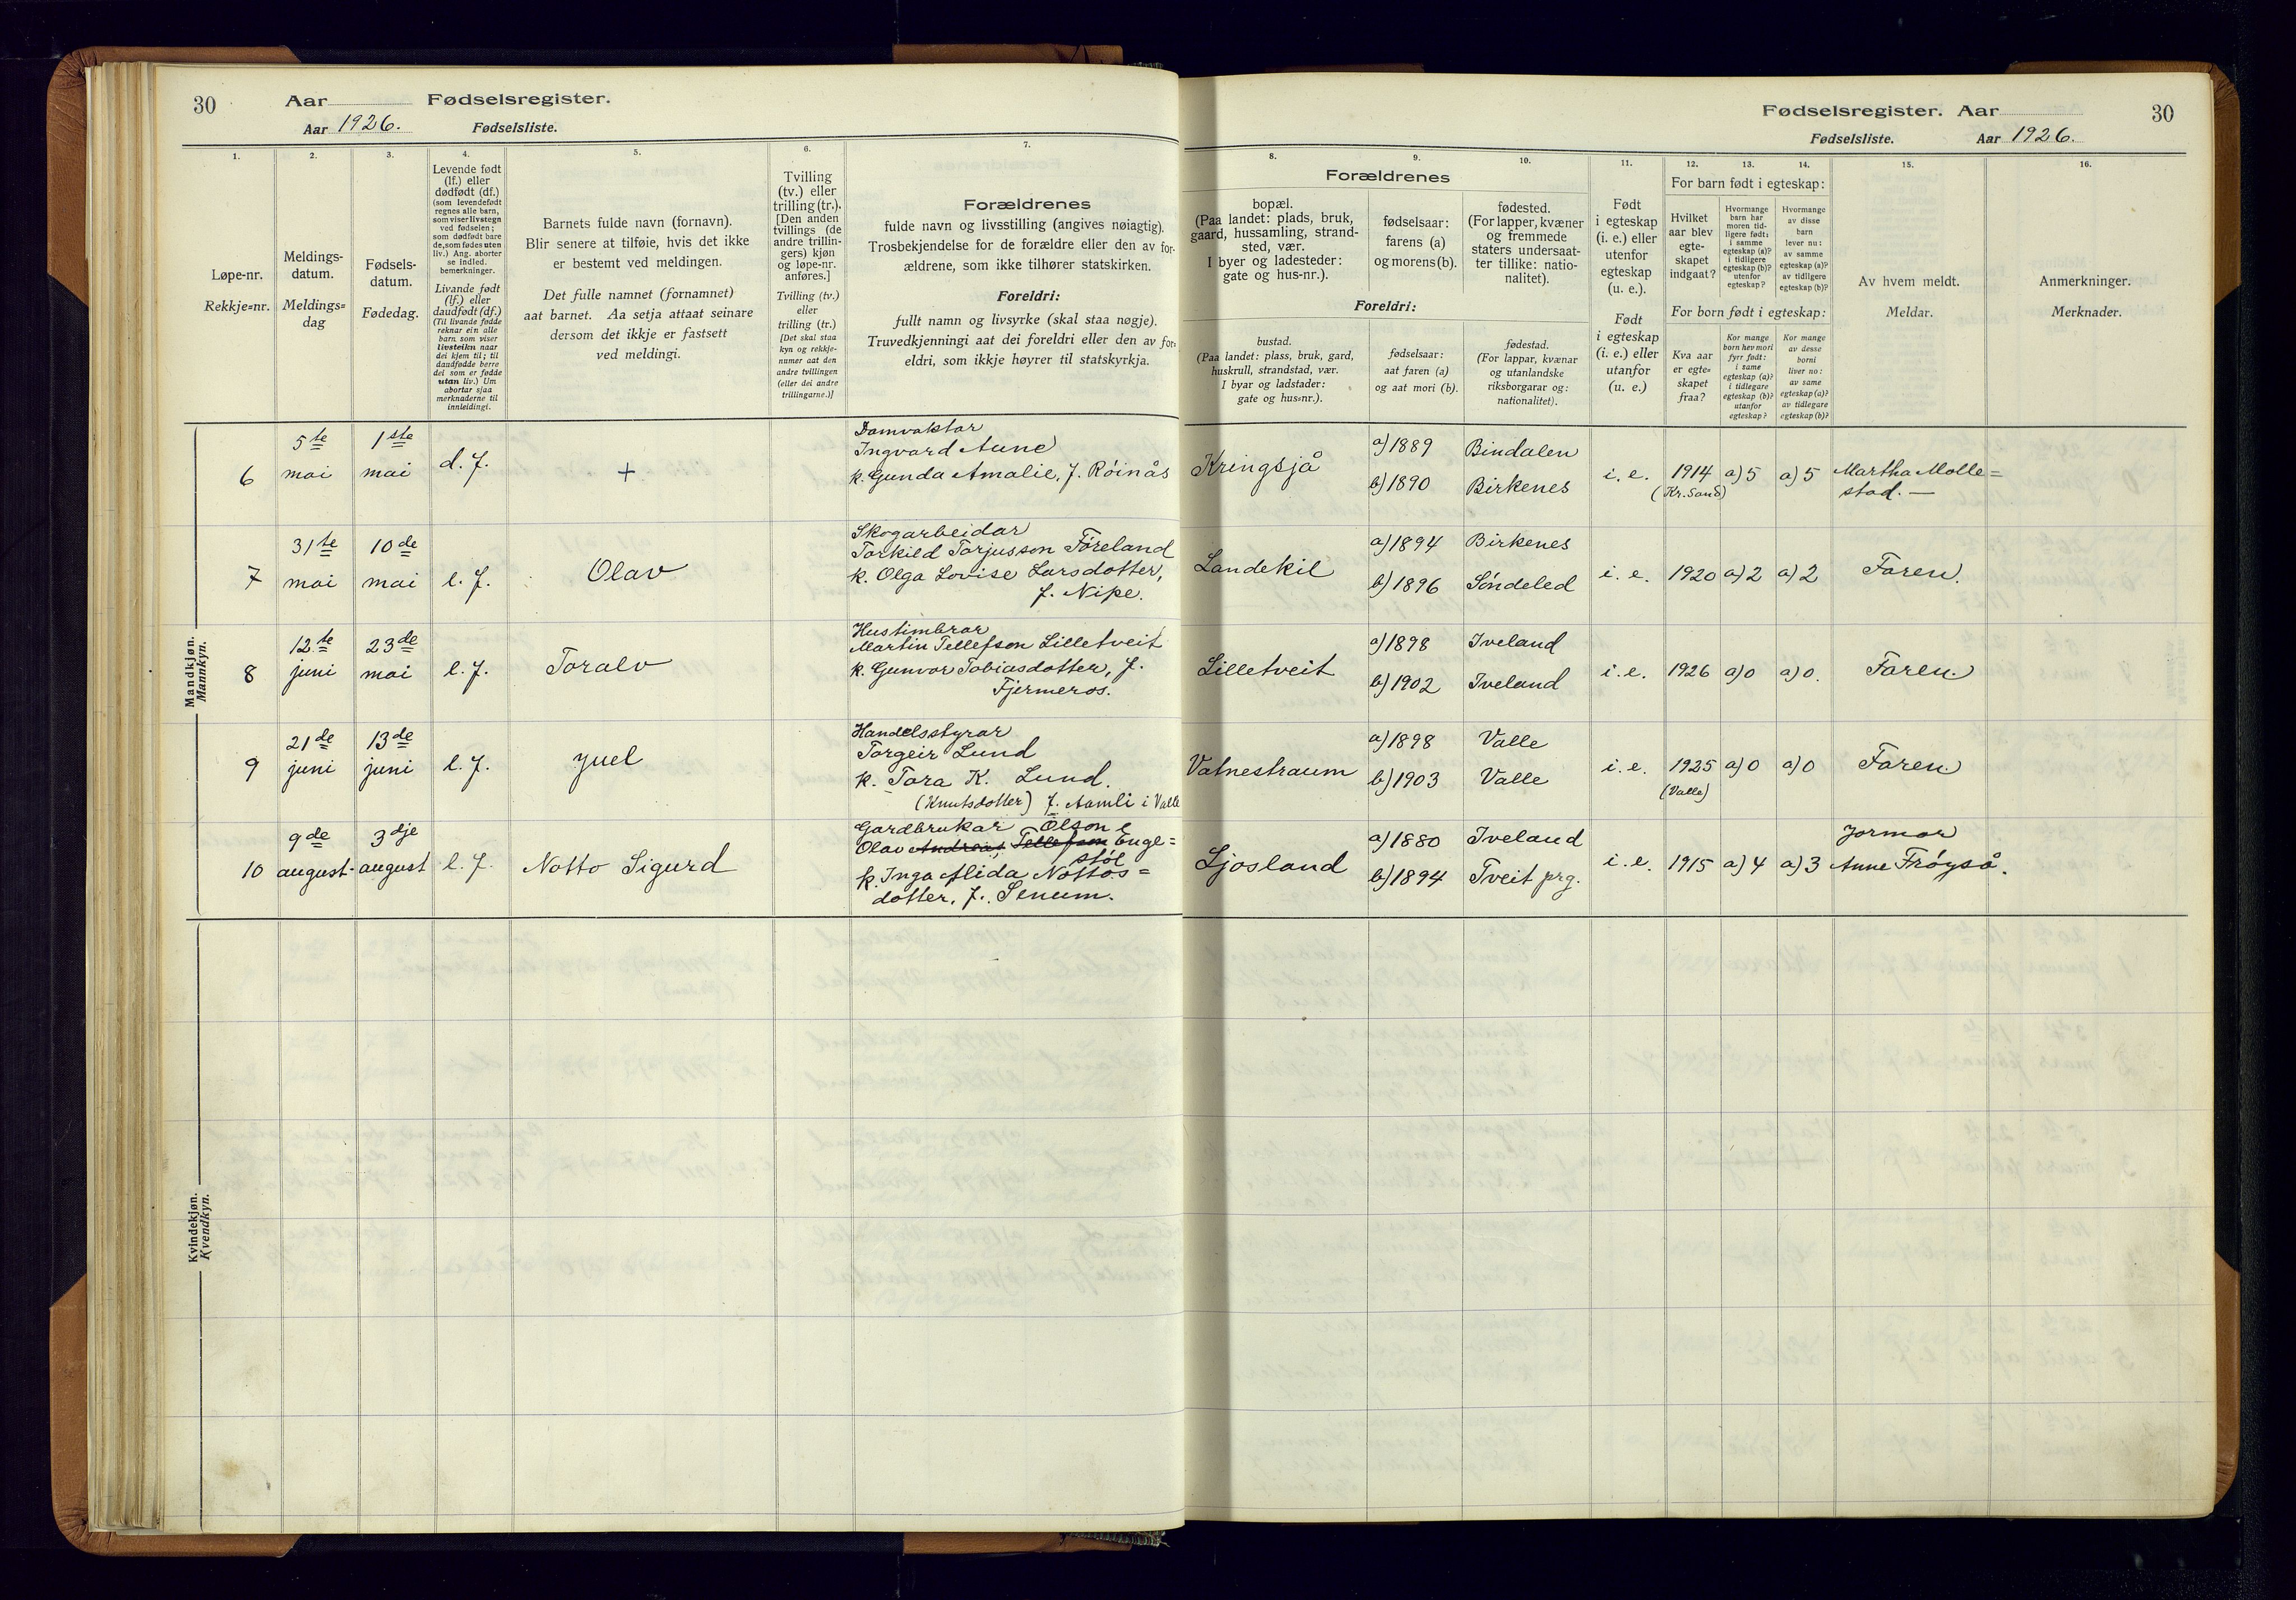 30
Aar
Fødselsregister.
Aar 1926.
Fødselsliste.
1.
2.
3.
4.
5.
6.
7.
Løpe-nr.
Rekkje=nr.
Meldings-
datum.
Meldings=
dag
Fødsels-
datum.
Fødedag.
Levende født
(lf.) eller
dødfødt (df.)
(som levendefødt
regnes alle barn,
som viser livstegn
ved fødselen;
som dødfødt bare
de, som fødes uten
liv.) Ang. aborter
se indled.
bemerkninger.
Livande født
(lf.) eller
daudfødt (df.)
(Til livande fødde
reknar ein alle
barn som viser
livsteikn naar
dei kjem til; til
daudfødde berre
dei som er fødde
utan liv.) Um
abortar sjaa
merknaderne til
innleidingi.
Barnets fulde navn (fornavn).
Blir senere at tilføie, hvis det ikke
er bestemt ved meldingen.
Det fulle namnet (fornamnet)
aat barnet. Aa setja attaat seinare
dersom det ikkje er fastsett
ved meldingi.
Tvilling
(tv.) eller
trilling (tr.).
[Den anden
tvillings (de
andre trillin-
gers) kjøn
og løpe-nr.
anføres.]
Tvilling (tv.)
eller
trilling (tr.)
[Det skal staa
kyn og rekkje-
numer aat den
andre tvillingen
(eller dei andre
trillingarne.)]
Forældrenes
fulde navn og livsstilling (angives nøiagtig).
Trosbekjendelse for de forældre eller den av for-
ældrene, som ikke tilhører statskirken.
Foreldri:
fullt namn og livsyrke (skal staa nøgje).
Truvedkjenningi aat dei foreldri eller den av for-
eldri, som ikkje høyrer til statskyrkja.
Mandkjøn.
Mannkyn.
6
5te
mai
1ste
mai
d. f.
+
Damvaktar
Ingvard Aune
k. Gunda Amalie, f. Röinås
7
31te
mai
10de
mai
l. f.
Olav
Skogarbeidar
Torkild Torjusson Föreland
k. Olga Lovise Larsdotter,
f. Nipe.
8
12te
juni
23de
mai
l. f.
Toralv
Hustimbrar
Martin Tellefson Lilletveit
k. Gunvor Tobiasdotter, f.
Fjermeros.
9
21de
juni
13de
juni
l. f.
Juel
Handelsstyrar
Torgeir Lund
k. Tora K. Lund.
(Knutsdotter) f. Aamli i Valle
10
9de
august.
3dje
august
l. f.
Notto Sigurd
Gardbrukar Olson
Olav Andreas Tellefson Enge=
støl
k. Inga Alida Nottos=
dotter, f. Senum.
Kvindekjøn.
Kvendkyn.
Fødselsregister. Aar
30
Fødselsliste.
Aar 1926.
8.
9.
10.
11.
12.
13.
14.
15.
16.
Forældrenes
bopæl.
(Paa landet: plads, bruk,
gaard, hussamling, strand-
sted, vær.
I byer og ladesteder:
gate og hus-nr.).
fødselsaar:
farens (a)
og morens (b).
fødested.
(For lapper, kvæner
og fremmede
staters undersaat-
ter tillike: natio-
nalitet).
Foreldri:
bustad.
(Paa landet: plass, bruk, gard,
huskrull, strandstad, vær.
I byar og ladstader:
gate og hus=nr.).
fødselsaar:
aat faren (a)
og aat mori (b).
fødestad.
(For lappar, kvænar
og utanlandske
riksborgarar og:
nationalitet).
Født
i egteskap
(i. e.) eller
utenfor
egteskap
(u. e.).
Født
i egteskap
(i. e.) eller
utanfor
(u. e.)
For barn født i egteskap:
Hvilket
aar blev
egte-
skapet
indgaat?
Hvormange
barn har
moren tid-
ligere født:
i samme
egteskap (a)?
i tidligere
egteskap (b)?
utenfor
egteskap?
Hvormange
av disse
barn
lever nu:
av samme
egteskap (a)?
av tidligere
egteskap (b)?
For born født i egteskap:
Kva aar
er egte=
skapet
fraa?
Kor mange
born hev mori
fyrr født:
i same
egteskap (a)?
i tidlegare
egteskap (b)?
utanfor
egteskap?
Kor mange
av desse
borni
liver no:
av same
egteskap (a)?
av tidlegare
egteskap (b)?
Av hvem meldt.
Meldar.
Anmerkninger.
Merknader.
Kringsjå
a) 1889
b) 1890
Bindalen
Birkenes
i. e.
1914
(Kr.sand)
a) 5
a) 5
Martha Molle=
stad. —
Landekil
a) 1894
b) 1896
Birkenes
Söndeled
i. e.
1920
a) 2
a) 2
Faren.
Lilletveit
a) 1898
b) 1902
Iveland
Iveland
i. e.
1926
a) 0
a) 0.
Faren.
Vatnestraum
a) 1898
b) 1903
Valle
Valle
i. e.
1925
(Valle)
a) 0
a) 0
Faren.
Ljosland
a) 1880
b) 1894
Iveland
Tveit prg.
i. e.
1915
a) 4
a) 3
Jormor
Anne Fröyså.